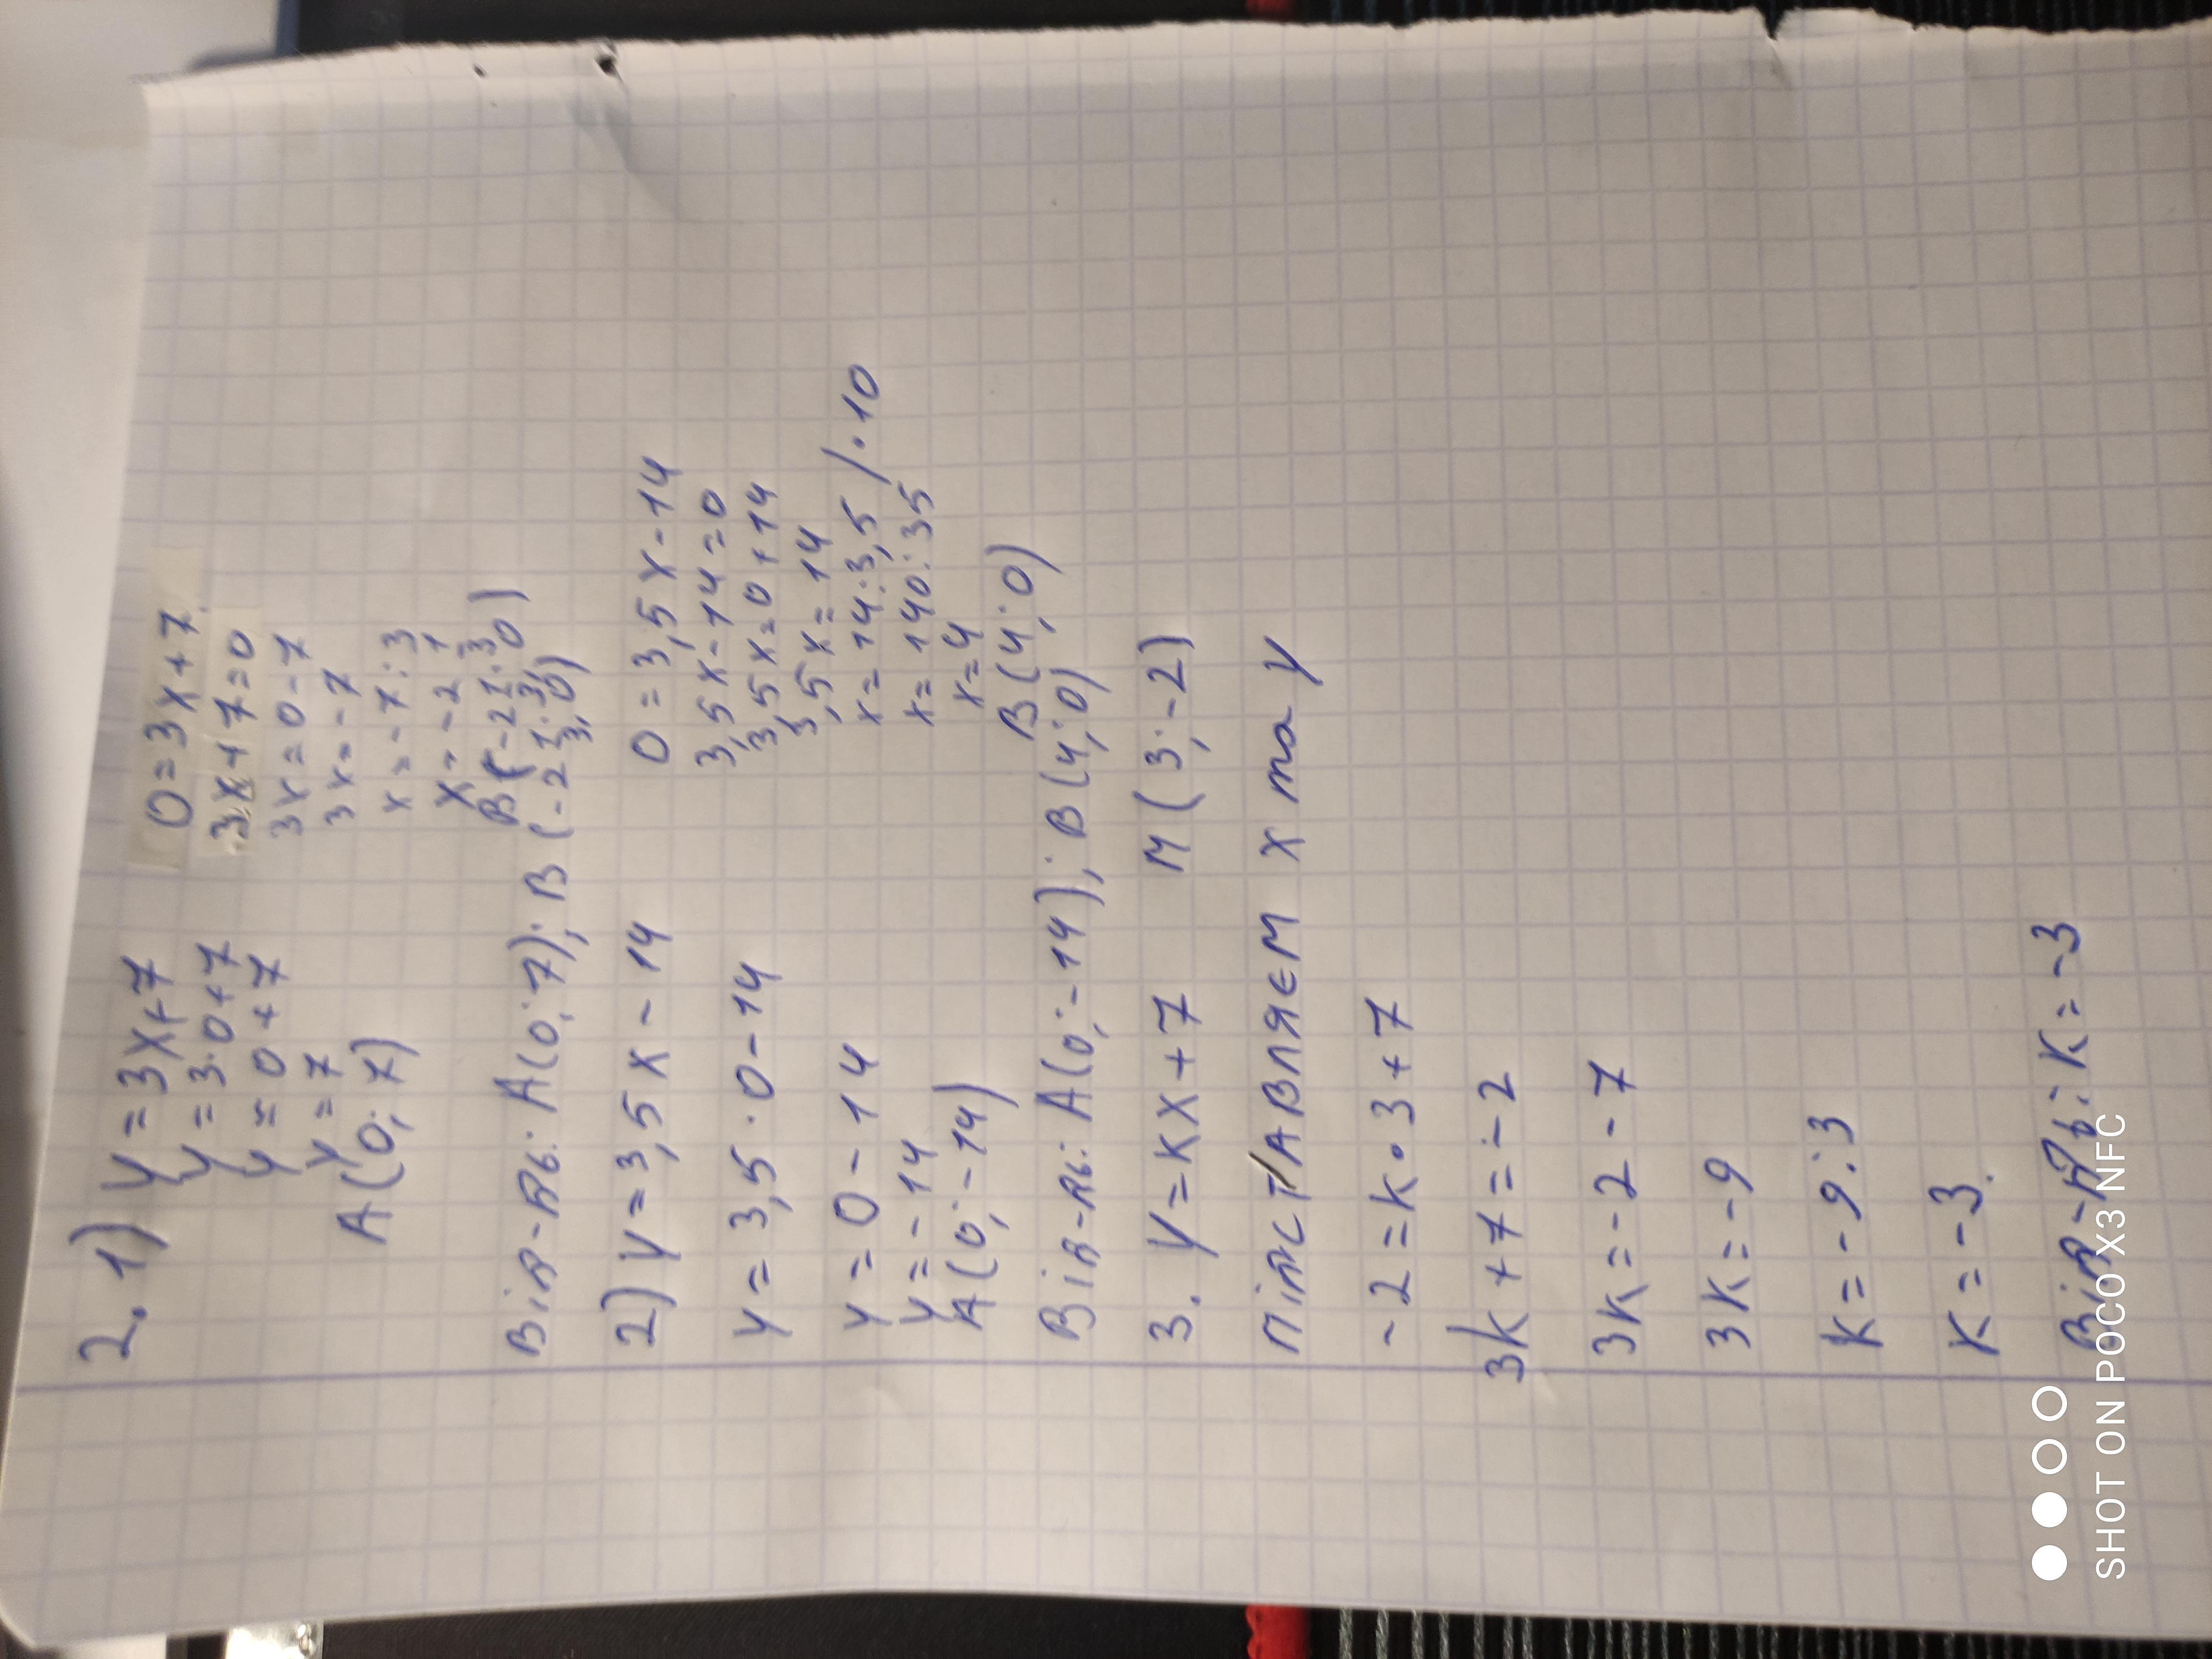 2. 1) y = 3x+7
y = 3·0+7
y = 0+7
y = 7
A(0; 7)
0=3x+7
3x+7=0
3x=0-7
3x=-7
x=-7:3
x=-2 1/3
B(-2 1/3; 0)
Від-дь: A(0; 7); B(-2 1/3; 0)
2) y=3,5x-14
y = 3,5·0-14
y = 0-14
y=-14
A(0; -14)
0=3,5x-14
3,5x-14=0
3,5x=0+14
3,5x=14
x=14:3,5 /·10
x=140:35
x=4
B(4; 0)
Від-дь: A(0; -14); B(4; 0)
3. y=kx+7 M(3; -2)
підставляєм x та y
-2=k·3+7
3k+7=-2
3k=-2-7
3k=-9
k=-9:3
k=-3.
Від-дь: k=-3
SHOT ON POCO X3 NFC